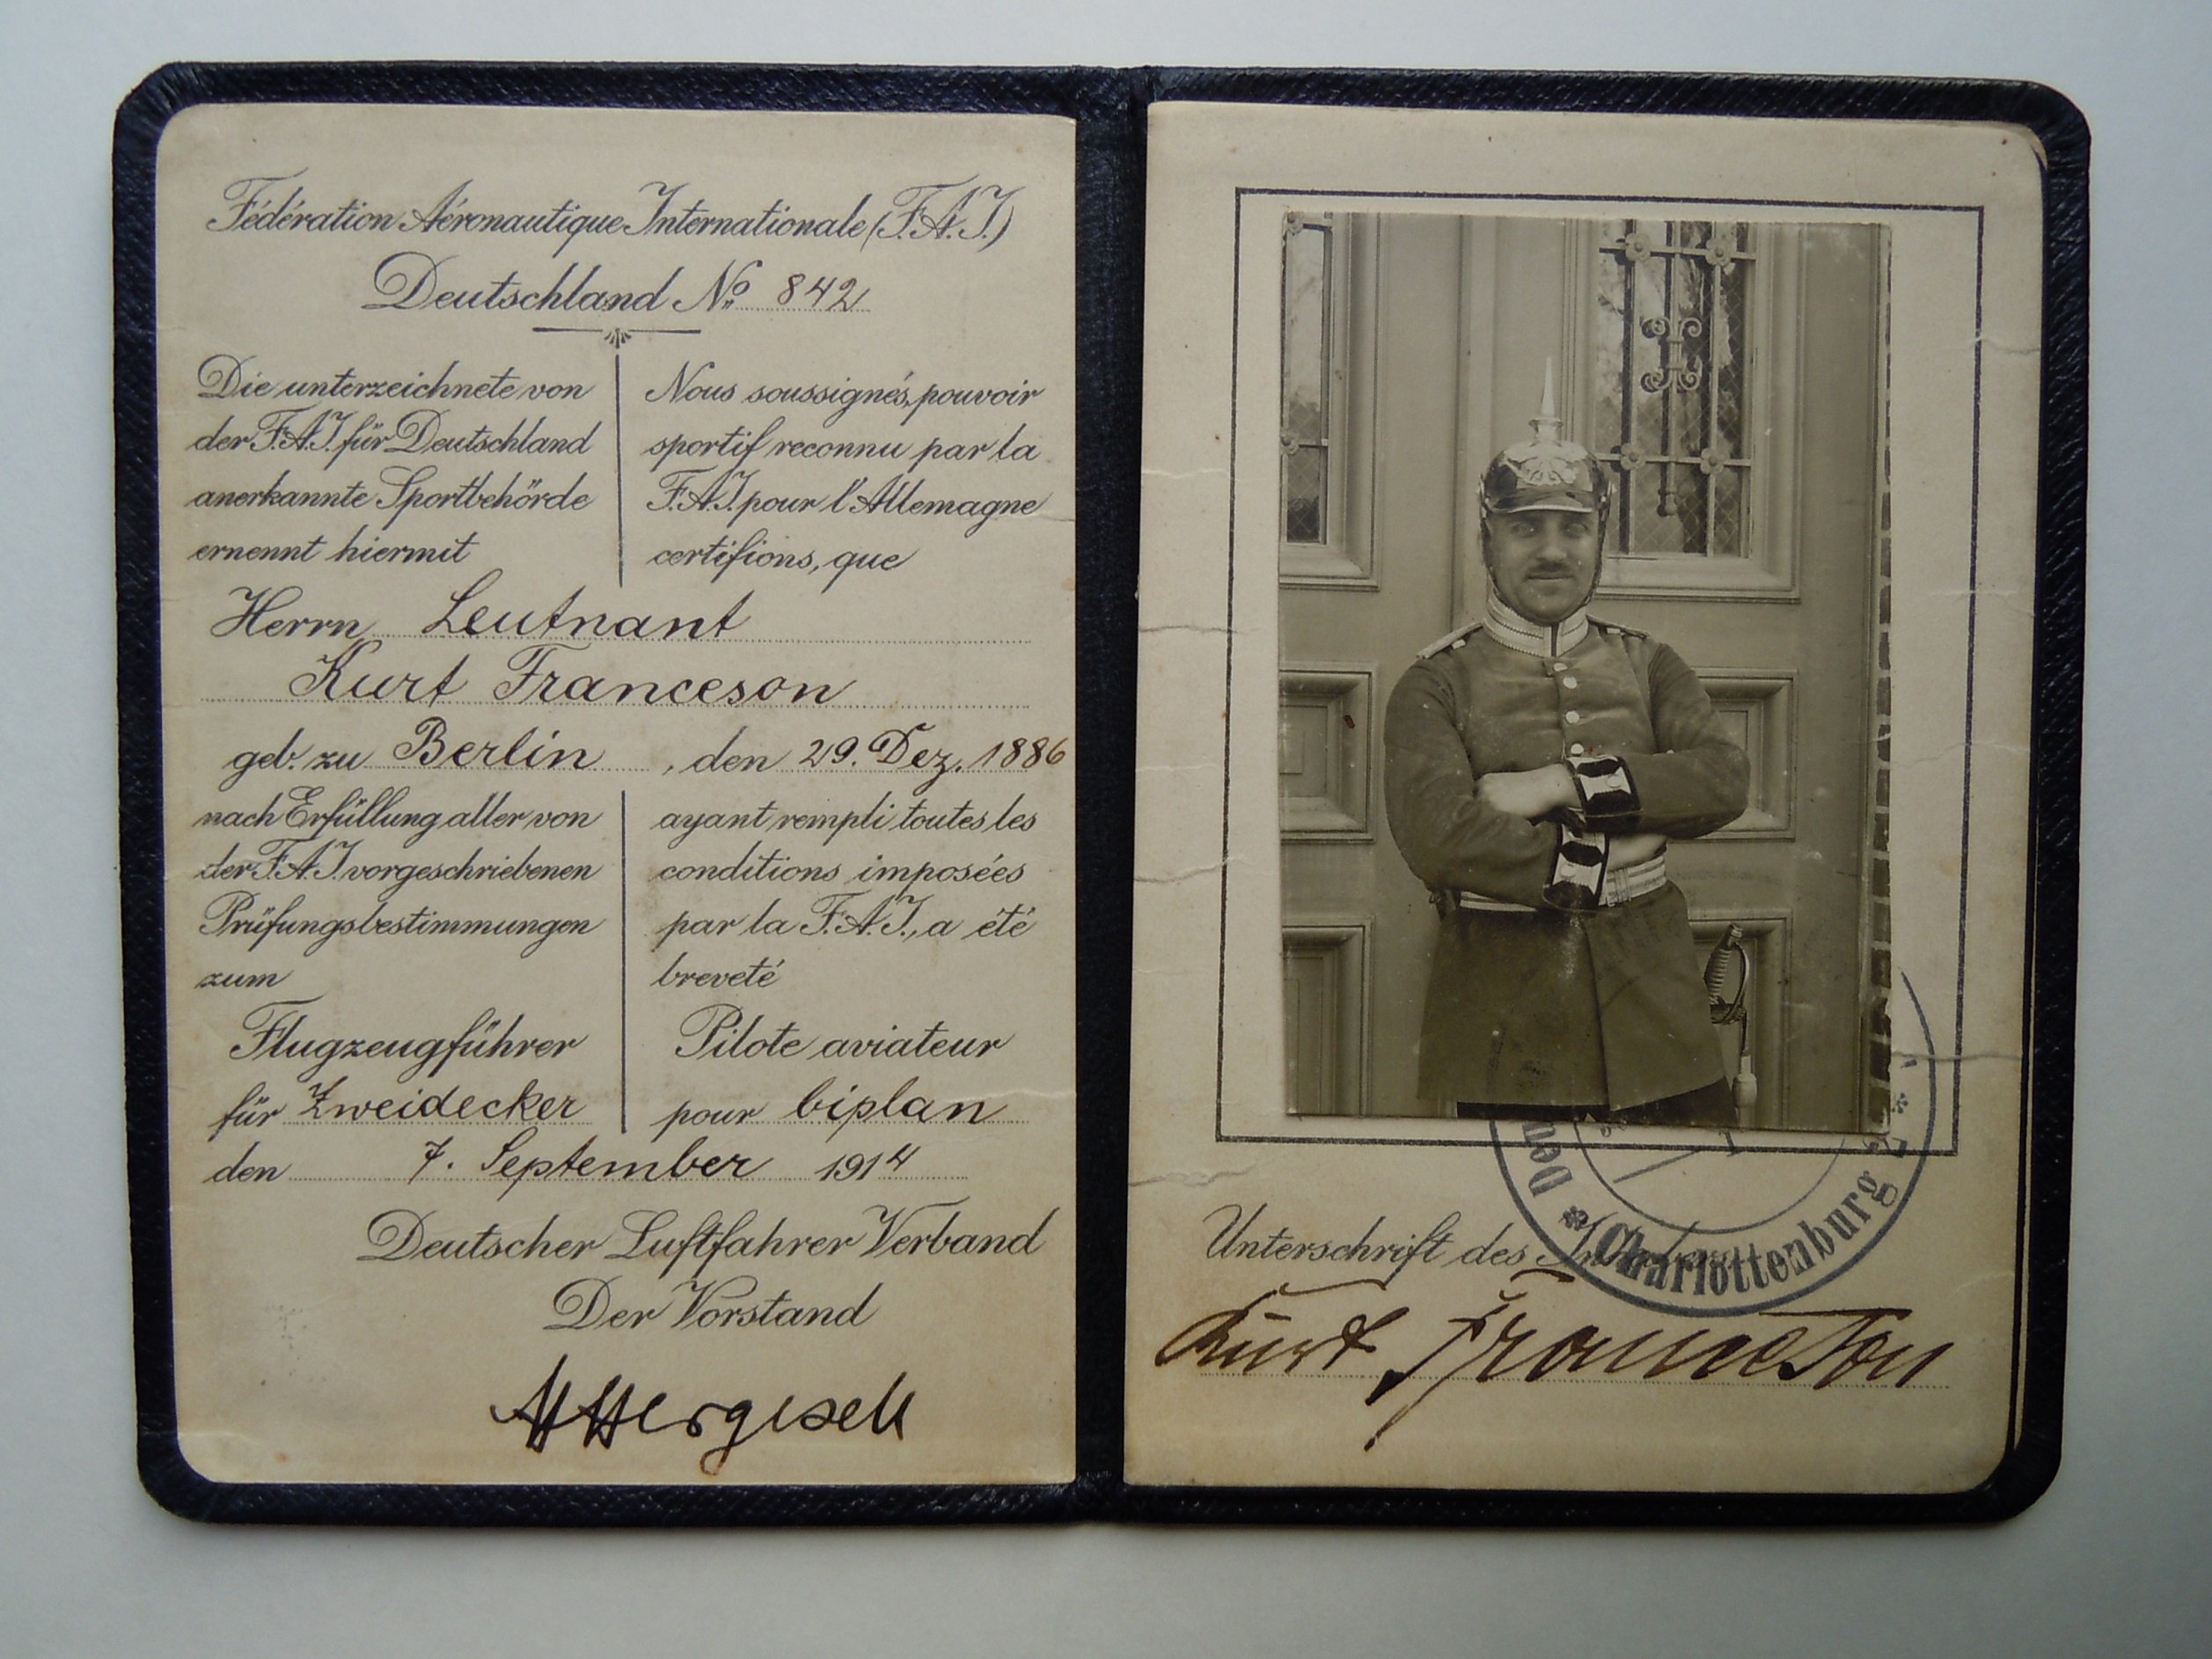 Fédération Aéronautique Internationale (F.A.I.)
Deutschland No. 842
Die unterzeichnete von
der F.A.I. für Deutschland
anerkannte Sportbehörde
ernennt hiermit
Nous soussignés, pouvoir
sportif reconnu par la
F.A.I. pour l'Allemagne
certifions, que
Herrn Leutnant
Kurt Franceson
geb. zu Berlin, den 29. Dez. 1886
nach Erfüllung aller von
der F.A.I. vorgeschriebenen
Prüfungsbestimmungen
zum
Flugzeugführer
für Zweidecker
ayant rempli toutes les
conditions imposées
par la F.A.I., a été
breveté
Pilote aviateur
pour biplan
den 7. September 1914
Deutscher Luftfahrer Verband
Der Vorstand
Unterschrift des
* Charlottenburg
Kurt Franceson